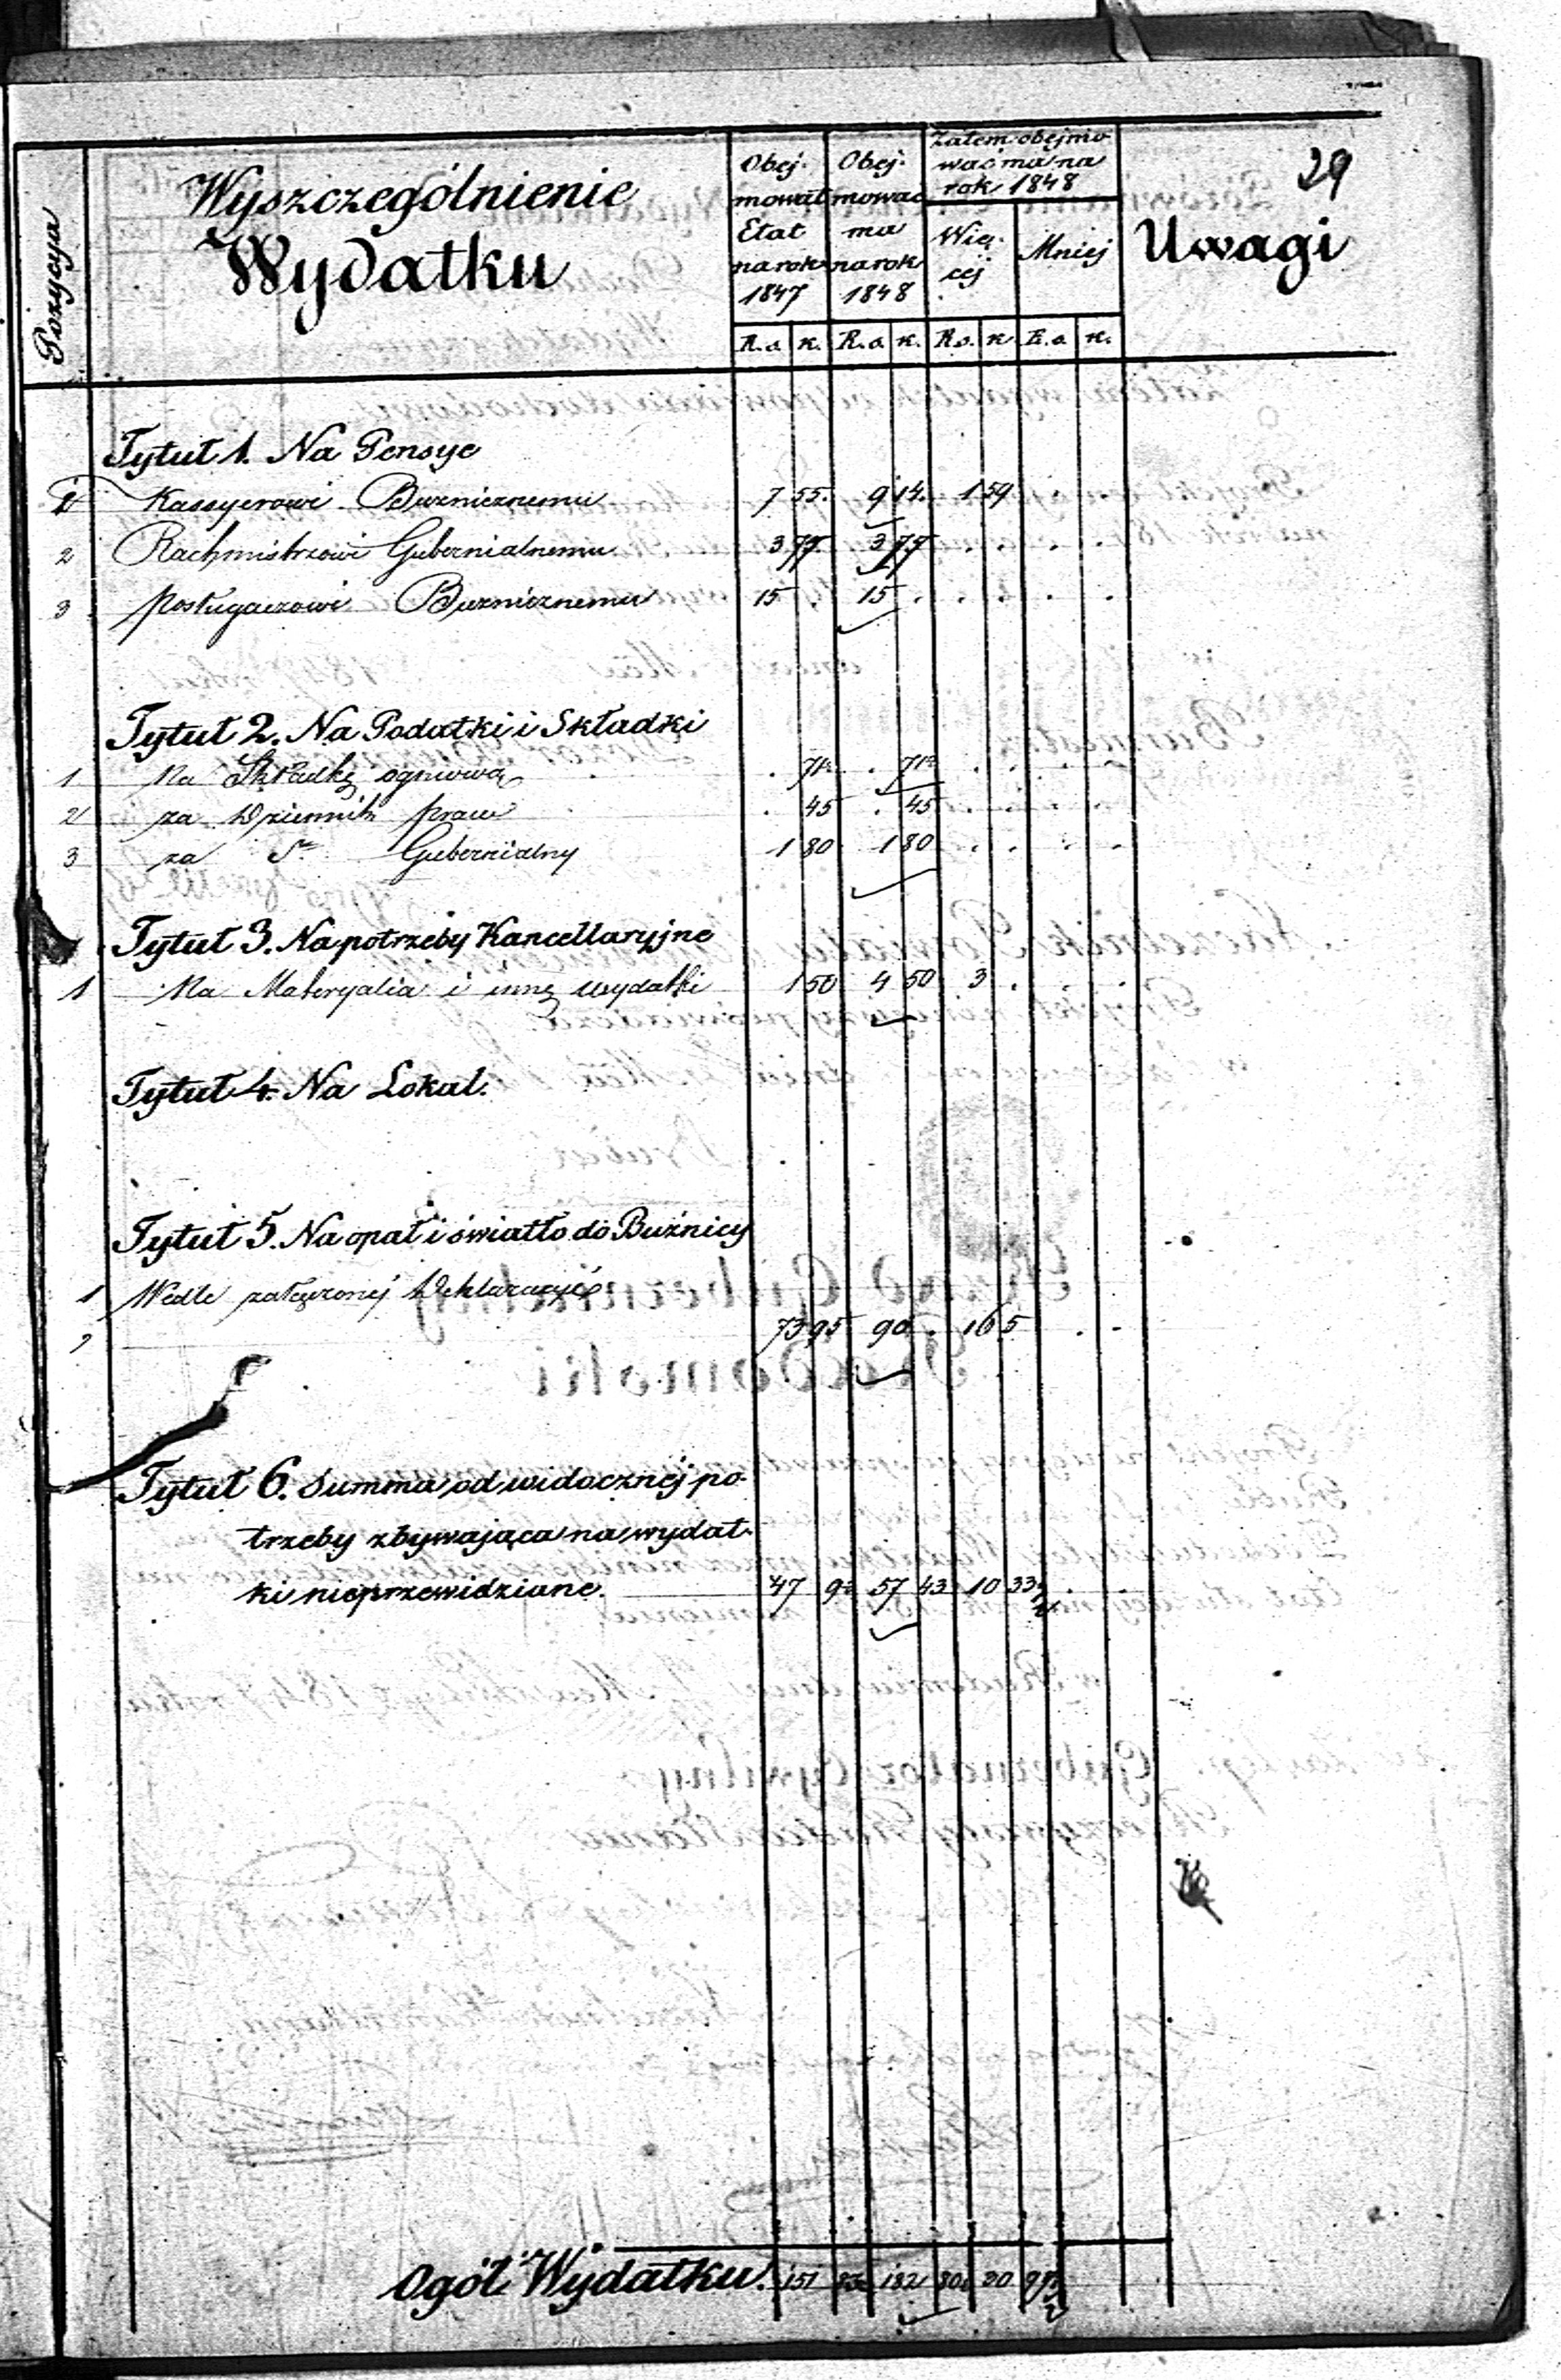 29
Pozycya
Wyszczególnienie
Wydatku
Obej-
mował
Etat
na rok
1847
Obej-
mować
ma
na rok
1848
Zatem obejmo-
wać ma na
rok 1848
Wię-
cej
Mniej
Uwagi
R.s. k. R.s. k. R.s. k. R.s. k.
Tytuł 1. Na Pensye
1 Kassyerowi Buznicznemu 7 55. 9 14. 1 59
2 Rachmistrzowi Gubernialnemu 3 77. 3 77
3 Posługaczowi Buzniczemu 15 . 15 .
Tytuł 2. Na Podatki i Składki
1 Na Składkę ogniową . 71½ . 71½
2 za Dziennik praw . 45 . 45
3 za Dto Gubernialny 1 80 1 80
Tytuł 3. Na potrzeby Kancellaryjne
1 Na Materyalia i inne wydatki 1 50 4 50 3 .
Tytuł 4. Na Lokal.
Tytuł 5. Na opał i światło do Buźnicy
1 Wedle załączonej Deklaracyi
2 73 95 90 . 16 5
Tytuł 6. Summa od widocznéj po-
trzeby zbywająca na wydat-
ki nieprzewidziane. 47 9½ 57 43 10 33½
Ogół Wydatku. 151 182 97½